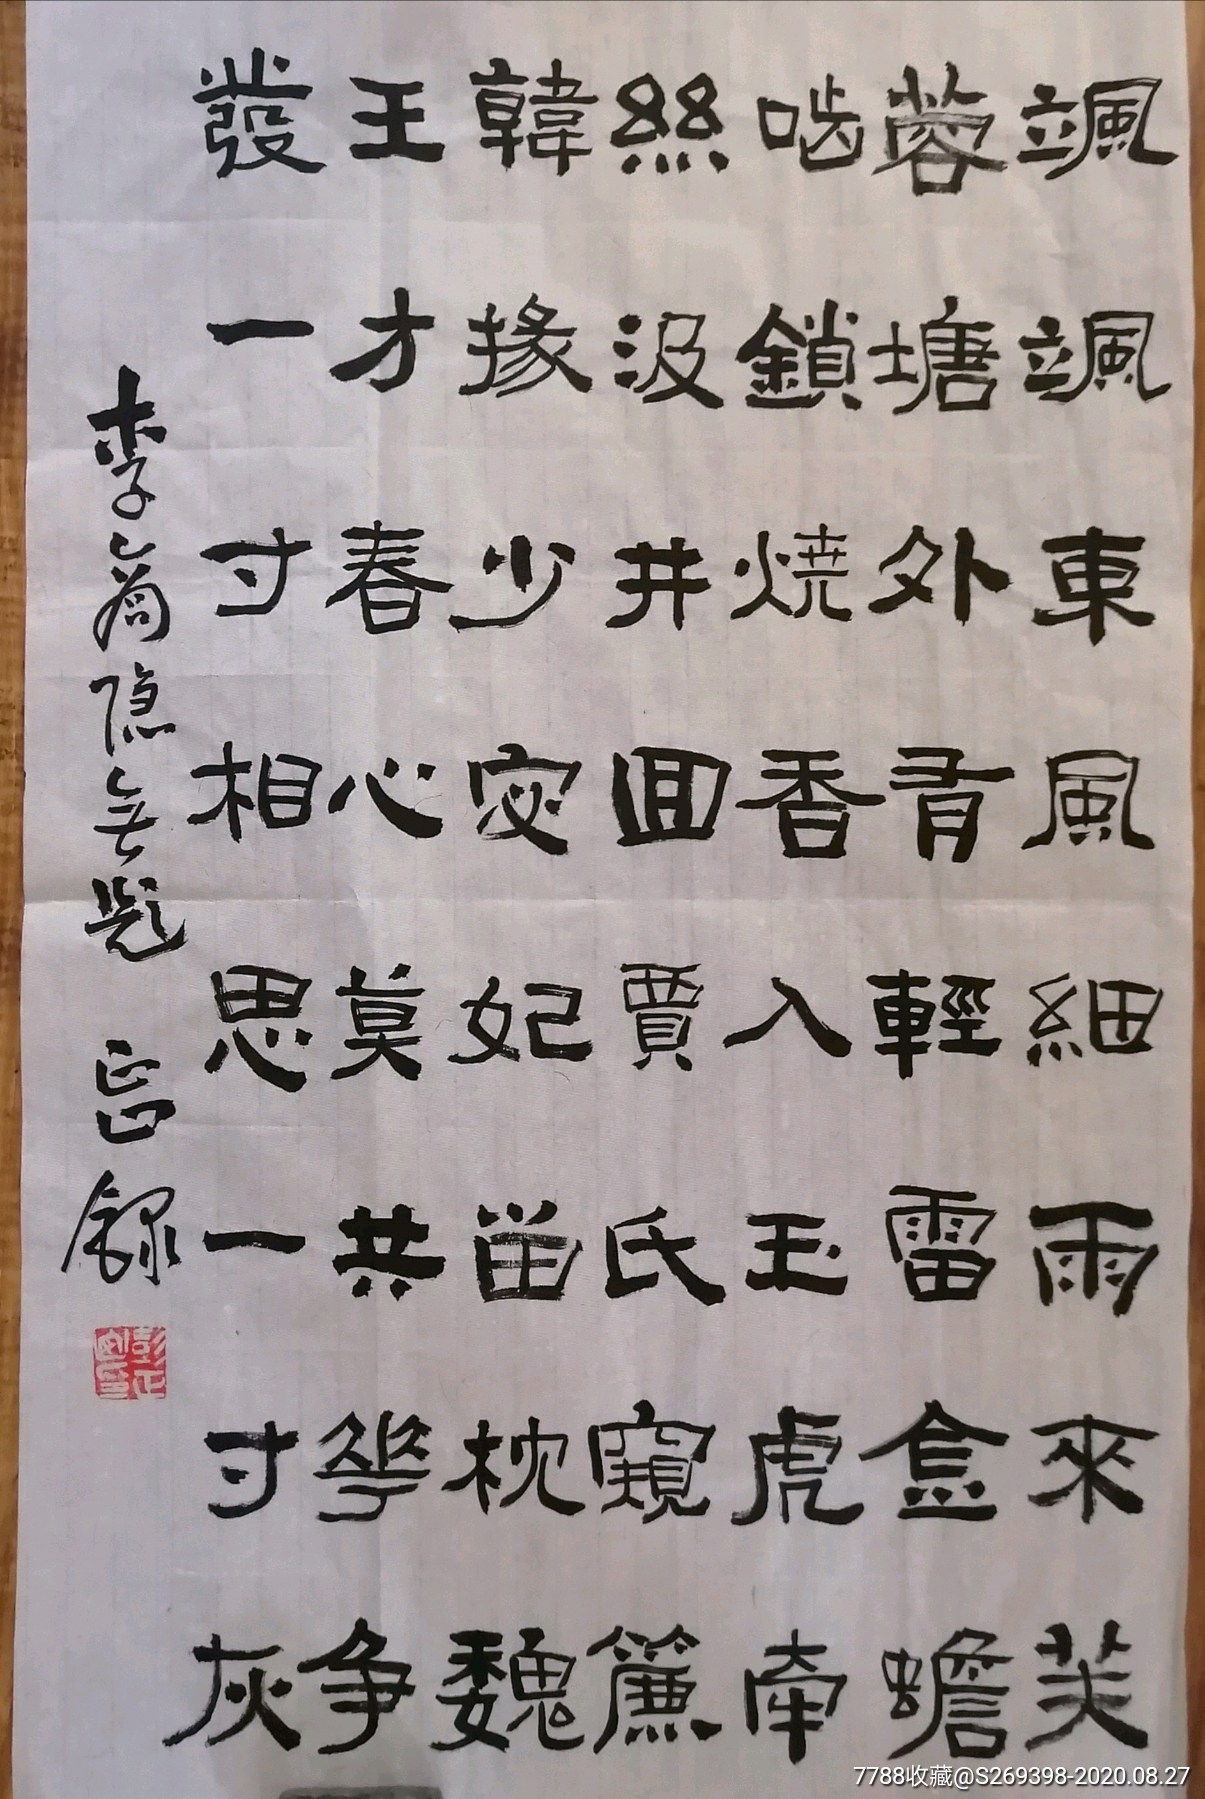 颯颯東風細雨來芙
蓉塘外有輕雷金蟾
啮鎖焼香入玉虎牽
絲汲井回賈氏窺簾
韓掾少宓妃留枕魏
王才春心莫共花争
發一寸相思一寸灰
李商隐无题 正録
7788收藏@S269398-2020.08.27